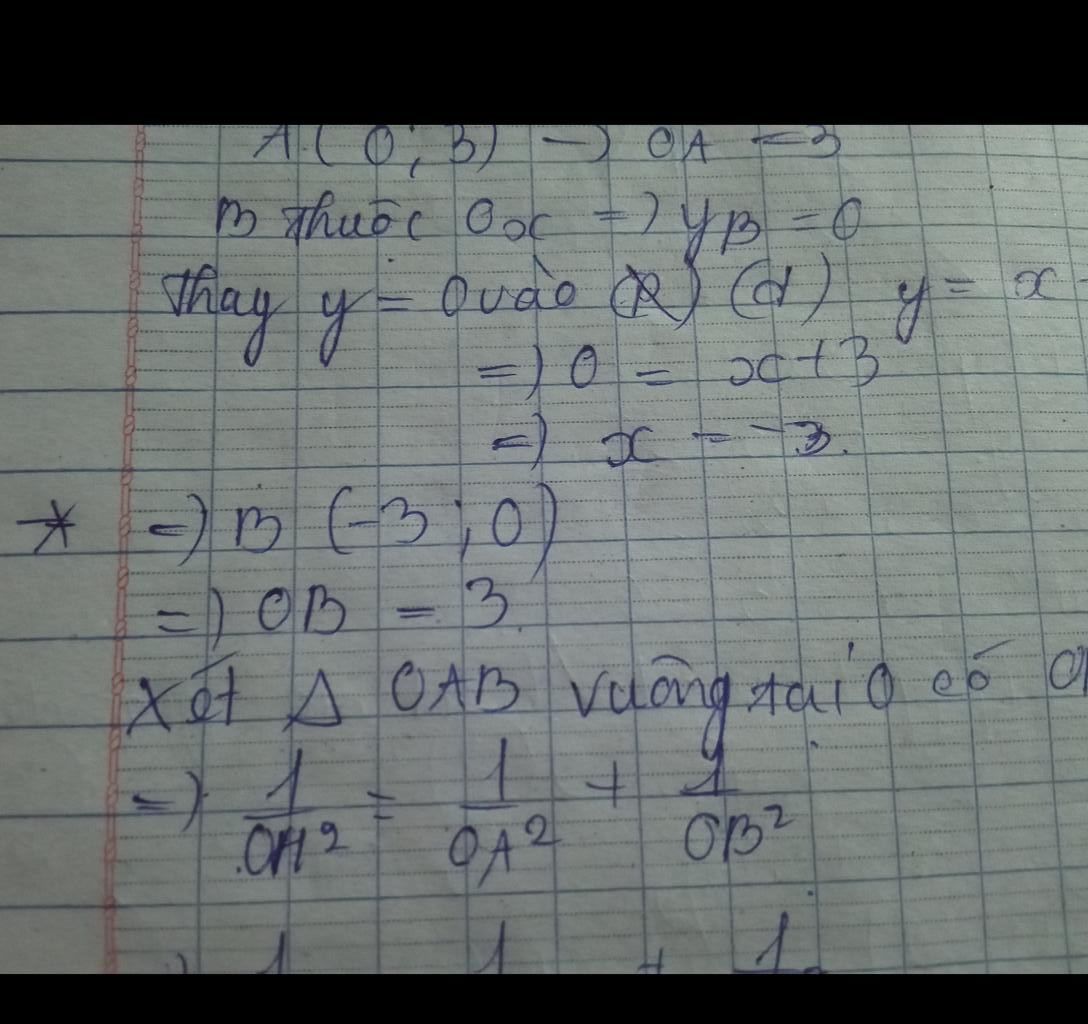 A ( 0 ; 3) => OA = 3
B thuộc Ox => yB = 0
Thay y = 0 vào (d) y = x
=> 0 = x + 3
=> x = -3.
* => B (-3 ; 0)
=> OB = 3.
Xét Δ OAB vuông tại O có
=> 1/OH² = 1/OA² + 1/OB²
1 1 + 1